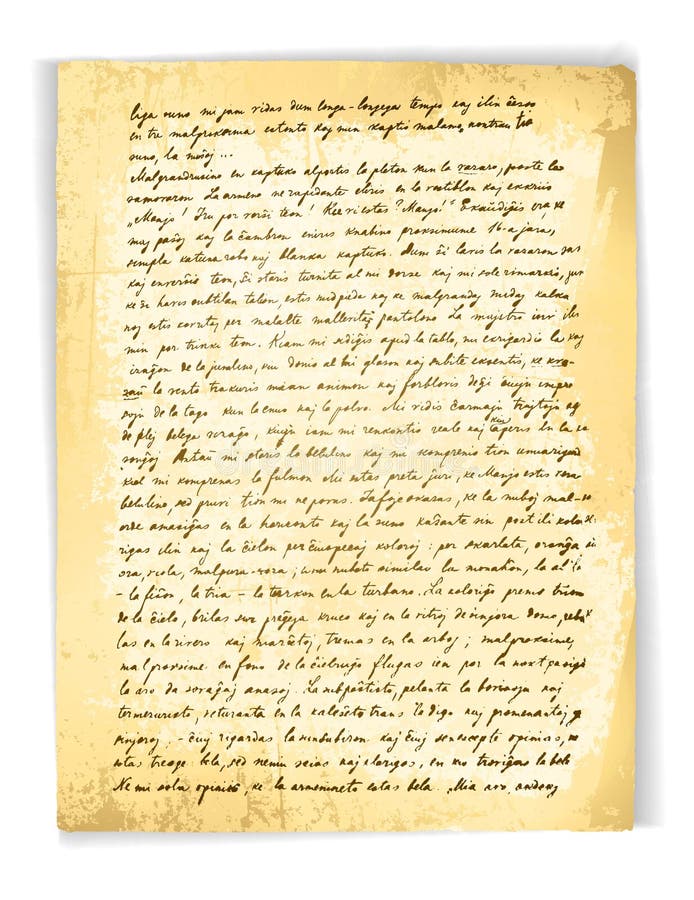 liga suno mi jam vidas dum longa-longega tempo kaj ilin ĉesos
en tre malproksima estonto kaj min kaptis malamo kontraŭ
suno, la muŝoj ...
Malgrandrusino en kaptuko alportis la pleton kun la vazaro, poste la
samovaron La armeno ne rapidante eliris en la vestiblon kaj ekkriis
"Manjo! Iru por verŝi teon! Kie vi estas? Manjo!" Ekaŭdiĝis
paŝoj kaj la ĉambron eniris knabino proksimume 16-a jara,
simpla katuna robo kaj blanka kaptuko. Dum ŝi lavis la vazaron
kaj enverŝis teon, ŝi staris turnita al mi dorse kaj mi sole rimarkis,
ke ŝi havis subtilan talion, estis nudpieda kaj ke malgrandaj nudaj kalka
noj estis kovritaj per malalte mallevitaj pantalono La mastro invi
min por trinki teon. Kiam mi sidiĝis apud la tablo, mi ekrigardis la
vizaĝon de la junulino, kiu donis al mi glason kaj subite eksentis, ke
la vento trakuris mian animon kaj forblovis
de la tago kun la enuo kaj la polvo. Mi vidis ĉarmajn trajtojn
de plej belega vizaĝo, kiujn iam mi renkontis reale kaj kiuj aperis en la
sonĝoj Antaŭ mi staris la belulino kaj mi komprenis tion
kiel mi komprenas la fulmon Mi estas preta ĵuri, ke Manjo estis vera
belulino, sed pruvi tion mi ne povas. Iafoje okazas, ke la nuboj mal-
orde amasiĝas en la horizonto kaj la suno kaŝante sin post ili kolo
rigas ilin kaj la ĉielon per ĉiuspecaj koloroj: per skarlata, oranĝa
ora, viola, malpura-roza; unu nubeto similas la monaĥon, la
- la fiŝon, la tria - la turkon en la turbano. La kolorigo
de la ĉielo, brilas sur preĝeja kruco kaj en la vitroj de sinjora domo,
las en la rivero kaj marĉetoj, tremas en la arboj; malproksime,
malproksime en fono de la ĉielruĝo flugas ien por la noktpasigo
la aro da sovaĝaj anasoj. La subpaŝtisto, pelanta la bovinojn kaj
termezuristo, veturanta en la kaleŝeto trans la digo kaj promenantaj
sinjoroj, - ĉiuj rigardas la sunsubiron kaj ĉiuj senescepte opinias, ke
estas treege bela, sed neniu scias kaj klarigos, en kio troviĝas la belo
Ne mi sola opiniis, ke la armenineto estas bela. Mia avo,